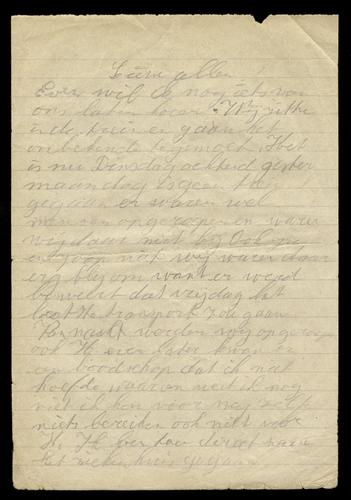 Lieve allen!
Even wil ik nog iets van
ons laten hooren. Wij zitten
in de trein en gaan het
onbekende tegemoet. Het
is nu Dinsdagochtend gister
maandag is geen trein
gegaan er waren wel
menschen opgeroepen en waren
wij daar niet bij
en wij waren daar
erg blij om want er werd
beweerd dat vrijdag het
laatste transport zou gaan
werden wij opgeroepen
ook H. kwam er
een boodschap dat ik niet
hoefde, waarom weet ik nog
niet ik kon voor mij zelf
niets bereiken ook niets voor
H. H. ben toen direct naar
het ziekenhuis gegaan